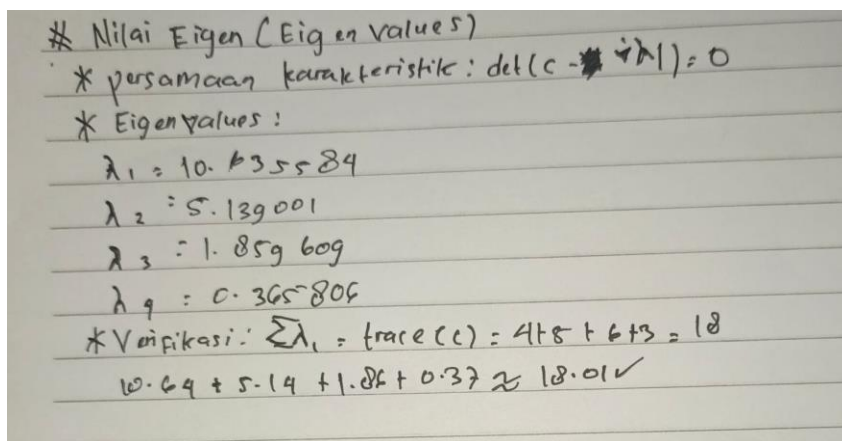 # Nilai Eigen (Eigen values)
* persamaan karakteristik : det(c - λI) = 0
* Eigenvalues :
λ1 = 10.635584
λ2 = 5.139001
λ3 = 1.859609
λ4 = 0.365806
* Verifikasi : Σλi = trace (c) = 4+5+6+3 = 18
10.64 + 5.14 + 1.86 + 0.37 ≈ 18.01 ✓